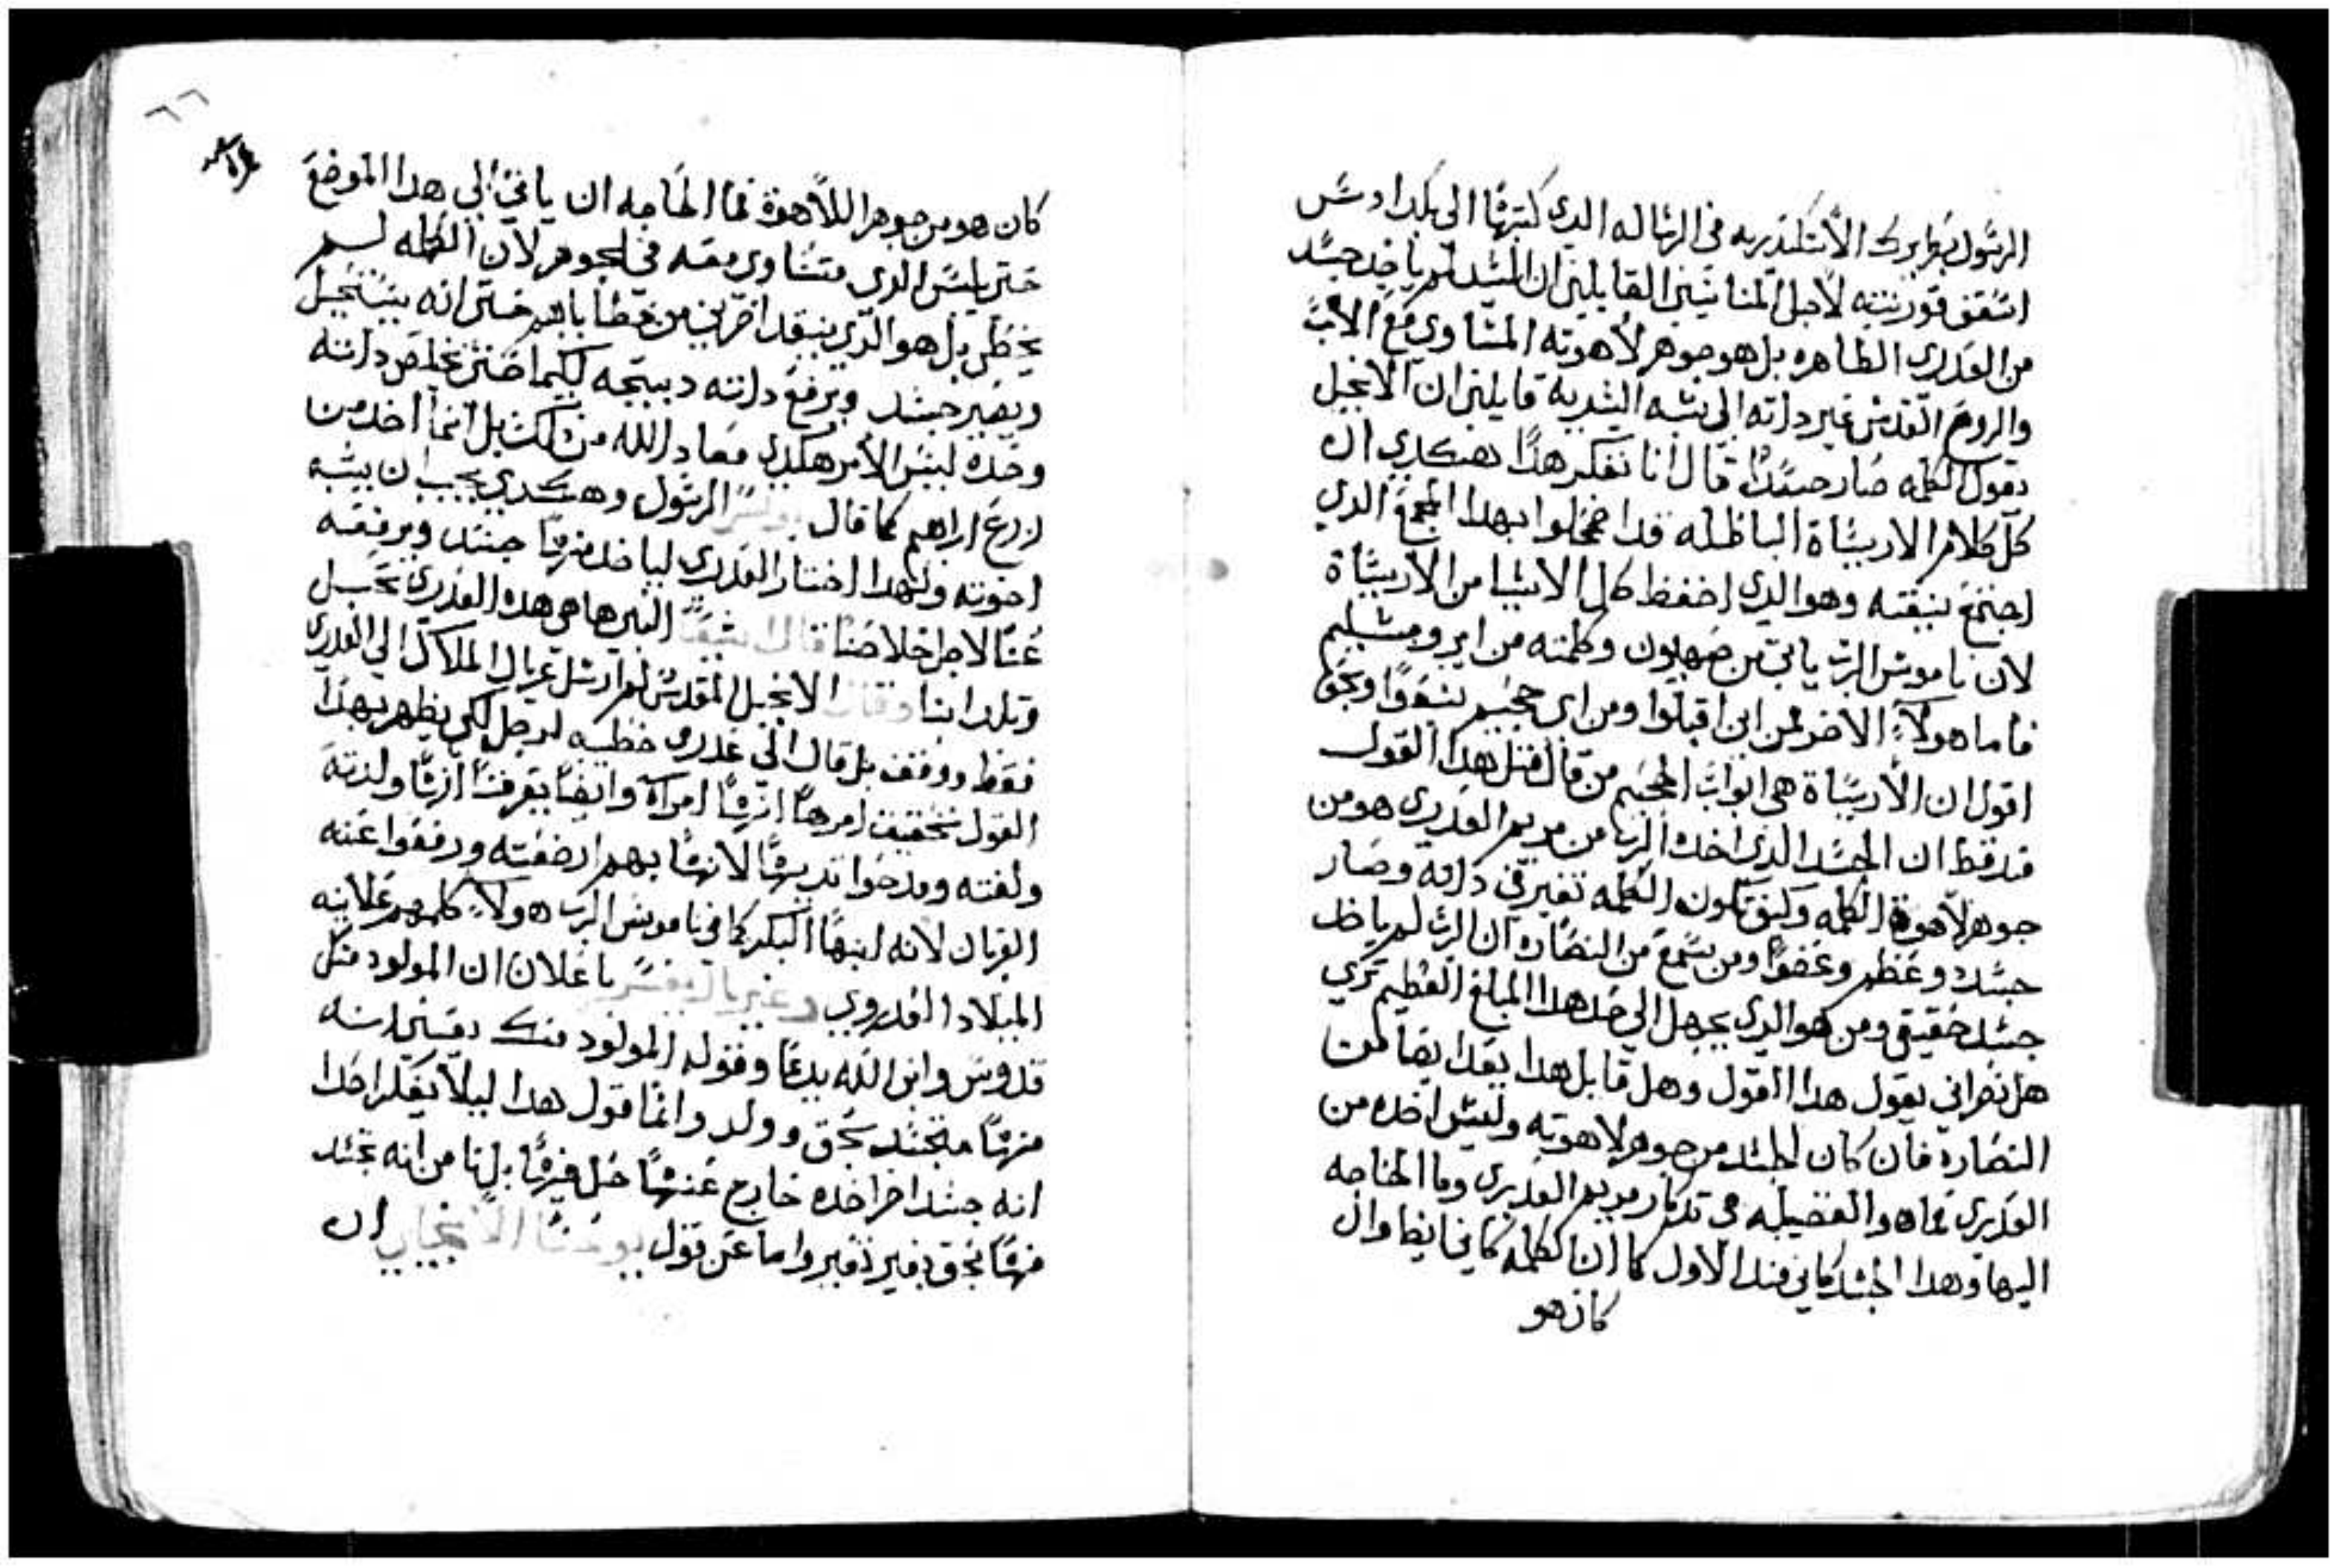 الرسول بطريرك الاسكندريه فى الرساله الدى كتبها الى
اسقف قورنتيه لاجل المنانيين القايلين ان المسيد لم ياخد جسد
من العدرى الطاهره بل هو جوهر لاهوته المساوى مع الاب
والروح القدس غير داته الى نسبه البشريه قايلين ان الانجيل
يقول الكلمه صار جسدًا قال انا نفكر هذا هكدى ان
كل كلام الاريساة الباطله قد اضمحلوا بهدا المجمع الدى
اجتمع بنيقيه وهو الدى احفظ كل الاشيا من الاريساة
لان ناموس الرب ياتى من صهيون وكلمته من ايروشليم
فاما هولاء الاخر لمن اين اقبلوا ومن اى جحيم نبعوا وبحق
اقول ان الاريساة هى ابواب الجحيم من قال قبل هدا القول
قد قط ان الجسد الدى اخده الرب من مريم العدرى هو من
جوهر لاهوة الكلمه وكيف تكون الكلمه تغير فى داته وصار
جسد وعظم وعضوًا ومن سمع من النصاره ان الرب لم ياخد
جسد حقيقى ومن هو الدى يجهل الى حد هدا المبلغ العظيم ترى
هل نصرانى يقول هدا القول وهل قايل هدا يعد ايضا من
النصاره فان كان الجسد من جوهر لاهوته وليس اخده من
العدرى فما هو الفضيله فى تدكار مريم العدرى وما الحاجه
اليها وهدا الجسد كاين مند الاول كما ان الكلمه كاين ايضا وان
كان هو
كان هو من جوهر اللاهوة فما الحاجه ان ياتى الى هدا الموضع
حتى يلبس الدى متساوى معه فى الجوهر لان الكلمه لسم
يخطى بل هو الدى ينقد اخرين من خطاياهم حتى انه يستحيل
ويصير جسد ويرفع داته دبيحه لكيما حتى تخلص داته
وحده ليس الامر هكدى معاد الله من دلك بل انما اخد من
زرع ابراهيم كما قال بولس الرسول وهكدى يجب ان يشبه
اخوته ولهدا اختار العدرى لياخد منها جسد ويرفعه
عنا لاجل خلاصنا قال اشعيا النبى ها هى هده العدرى تحبل
وتلد ابنا وقال الانجيل المقدس لم ارسل غبريال الملاك الى العدرى
فقط ووقف بل قال الى عدرى خطيبه لرجل لكى يظهر بهدا
القول تحقيق امرها انها امراة وايضا يعرفنا انها ولدته
ولفته ومدحوا تدييها لانها بهم ارضعته ورفعوا عنه
القربان لانه ابنها البكر كما فى ناموس الرب هولاء كلهم علانيه
الميلاد القدوى وغبريال يفسر باعلان ان المولود منك
قدوس وابن الله يدعا وقوله المولود منك يعنى انه
منها متجسد بحق وولد وانما قول هدا ليلا يفكر احدا
انه جسد اخر اخده خارج عنها حل فيها بل انا من انه تجسد
منها بحق بغير تغير واما عن قول يوحنا الانجيلى ان